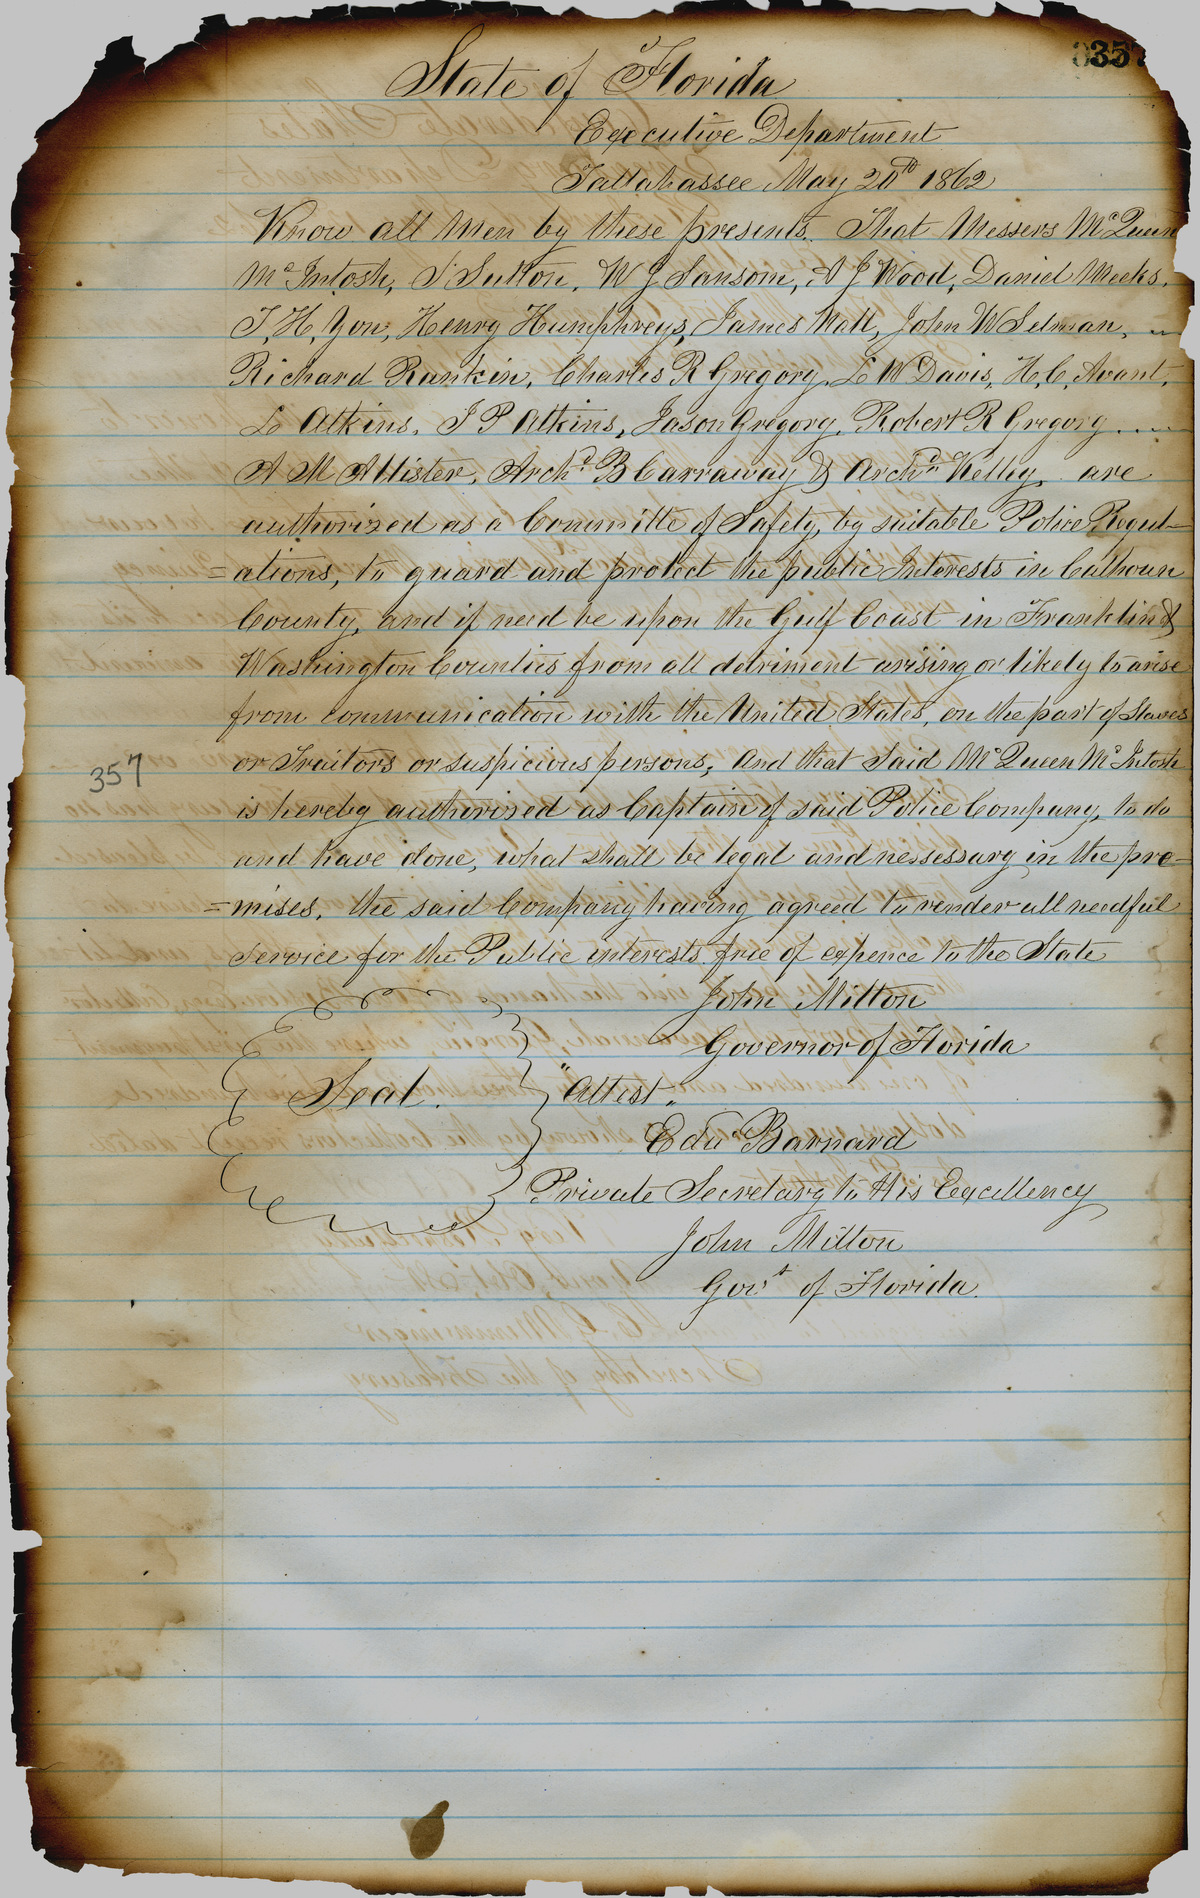 0357
State of Florida
Executive Department
Tallahassee May 20th 1862
Know all Men by these presents. That Messers McQueen
McIntosh, S Sutton, W J Sansom, A J Wood, Daniel Meeks,
T. H. Yon, Henry Humphreys, James Natt, John W Selman,
Richard Rankin, Charles R Gregory, L W Davis, H. C. Avant,
L Atkins, J P Atkins, Jason Gregory, Robert R Gregory ....
A M Allister, Archd B Carraway & Archd Kelley, are
authorized as a Committe of Safety, by suitable Police Regul-
=ations, to guard and protect the public Interests in Calhoun
County, and if need be upon the Gulf Coast in Franklin &
Washington Counties from all detriment arising or likely to arise
from communication with the United States, on the part of Slaves
or Traitors or suspicious persons, And that Said McQueen McIntosh
357
is hereby authorized as Captain of said Police Company, to do
and have done, what shall be legal and nessessary in the pre-
=mises, the said Company having agreed to render all needful
service for the Public interests free of expence to the State
John Milton
Governor of Florida
Seal. "Attest"
Edw Barnard
Private Secretary to His Excellency
John Milton
Govr of Florida.